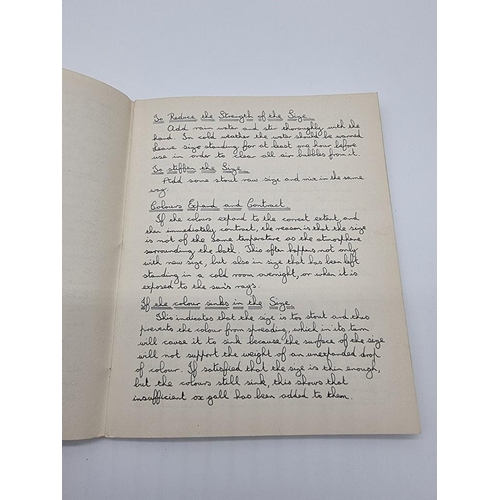 To Reduce the Strength of the Size
Add rain water and stir thoroughly with the
hand. In cold weather the water should be warmed
Leave size standing for at least one hour before
use in order to clear all air bubbles from it.
To stiffen the Size
Add some stout raw size and mix in the same
way.
Colours Expand and Contract
If the colours expand to the correct extent, and
then immediately contract, the reason is that the size
is not of the same temperature as the atmosphere
surrounding the bath. This often happens not only
with new size, but also in size that has been left
standing in a cold room overnight, or when it is
exposed to the sun's rays.
If the colour sinks in the Size
This indicates that the size is too stout and thus
prevents the colour from spreading, which in its turn
will cause it to sink because the surface of the size
will not support the weight of an unexpanded drop
of colour. If satisfied that the size is thin enough,
but the colours still sink, this shows that
insufficient ox gall has been added to them.